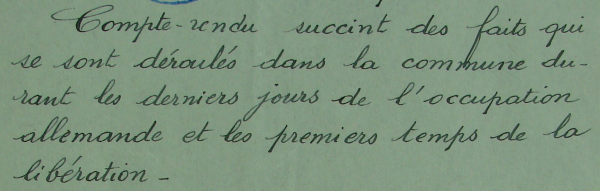 Compte-rendu succint des faits qui
se sont déroulés dans la commune du-
rant les derniers jours de l'occupation
allemande et les premiers temps de la
libération -